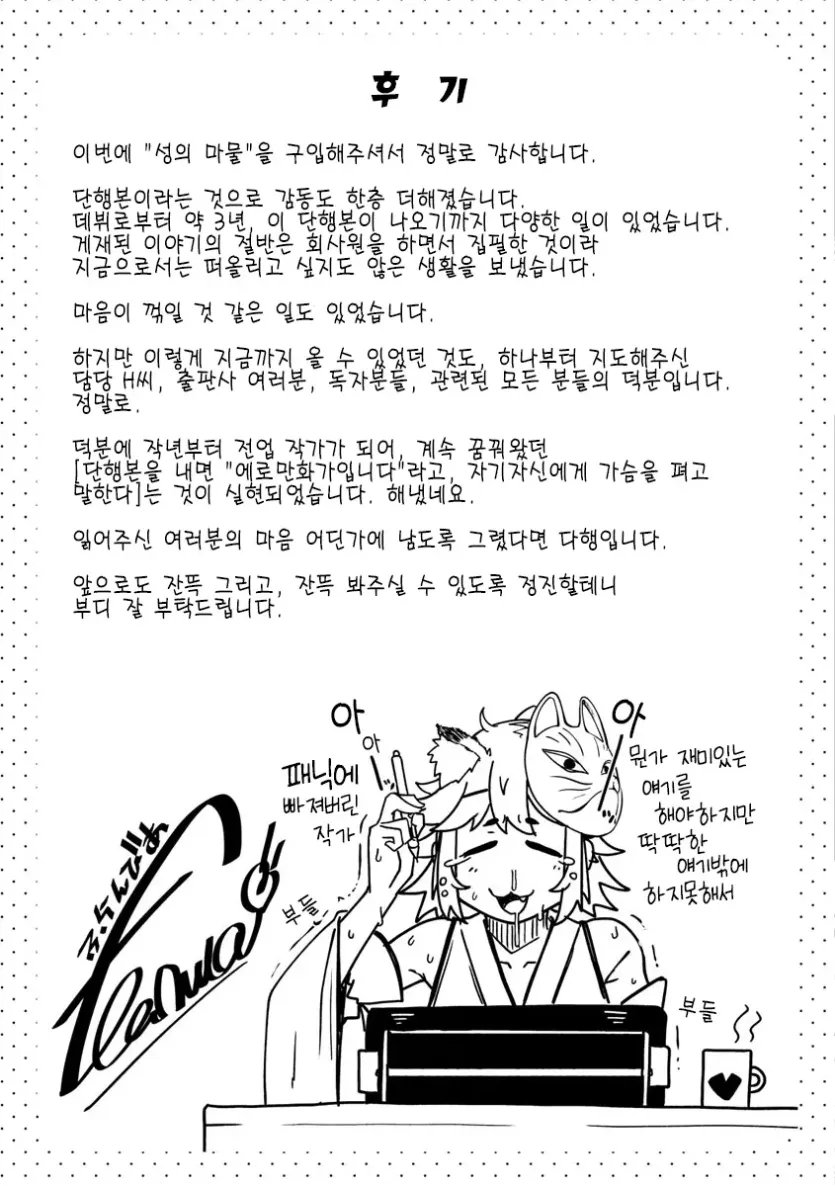 후 기
이번에 "성의 마물"을 구입해주셔서 정말로 감사합니다.
단행본이라는 것으로 감동도 한층 더해졌습니다.
데뷔로부터 약 3년, 이 단행본이 나오기까지 다양한 일이 있었습니다.
게재된 이야기의 절반은 회사원을 하면서 집필한 것이라
지금으로서는 떠올리고 싶지도 않은 생활을 보냈습니다.
마음이 꺾일 것 같은 일도 있었습니다.
하지만 이렇게 지금까지 올 수 있었던 것도, 하나부터 지도해주신
담당 H씨, 출판사 여러분, 독자분들, 관련된 모든 분들의 덕분입니다.
정말로.
덕분에 작년부터 전업 작가가 되어, 계속 꿈꿔왔던
[단행본을 내면 "에로만화가입니다"라고, 자기자신에게 가슴을 펴고
말한다]는 것이 실현되었습니다. 해냈네요.
읽어주신 여러분의 마음 어딘가에 남도록 그렸다면 다행입니다.
앞으로도 잔뜩 그리고, 잔뜩 봐주실 수 있도록 정진할테니
부디 잘 부탁드립니다.
아
아
패닉에
빠져버린
작가
아
뭔가 재미있는
얘기를
해야하지만
딱딱한
얘기밖에
하지못해서
부들
부들